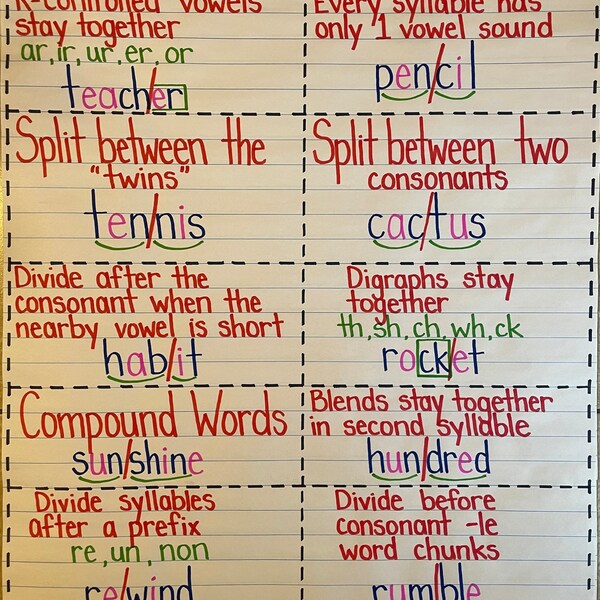 R-controlled vowels
stay together
ar, ir, ur, er, or
teach/er
Every syllable has
only 1 vowel sound
pen/cil
Split between the
"twins"
ten/nis
Split between two
consonants
cac/tus
Divide after the
consonant when the
nearby vowel is short
hab/it
Digraphs stay
together
th, sh, ch, wh, ck
rock/et
Compound Words
sun/shine
Blends stay together
in second syllable
hun/dred
Divide syllables
after a prefix
re, un, non
re/wind
Divide before
consonant -le
word chunks
rum/ble